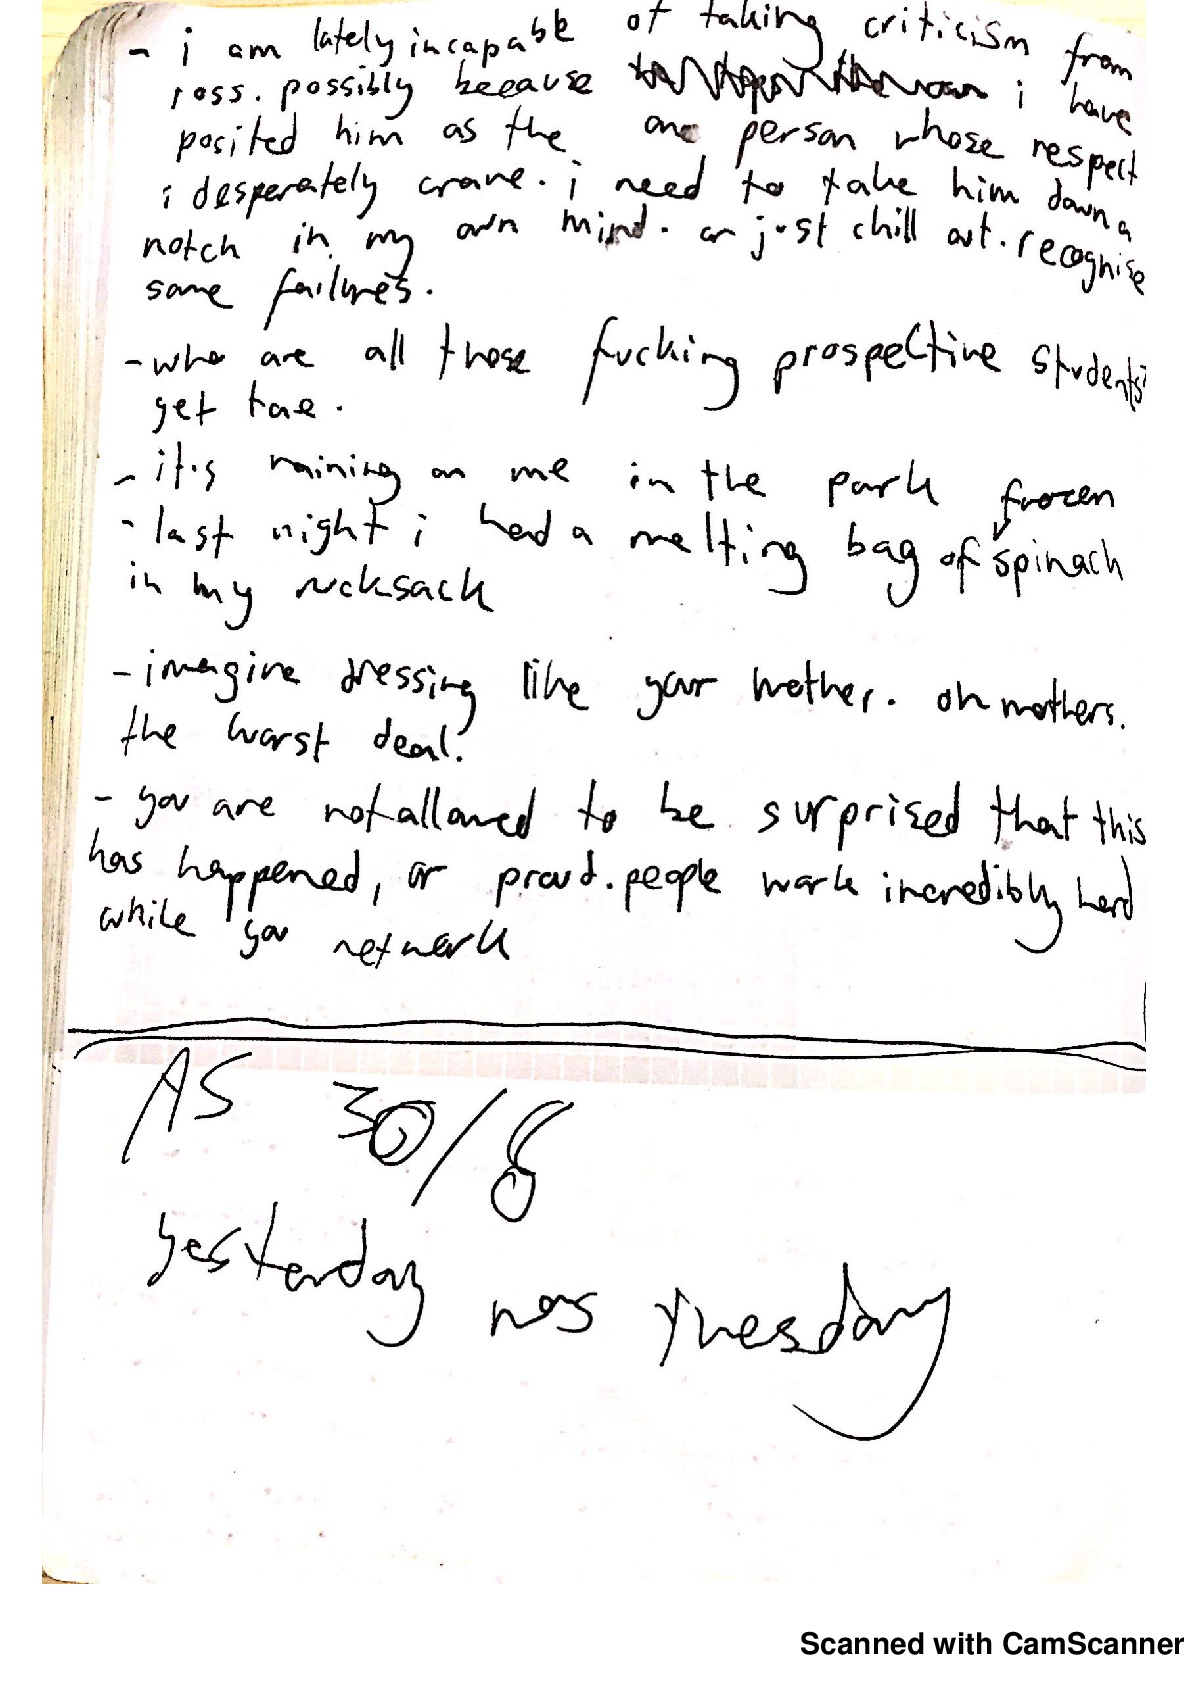 - i am lately incapable of taking criticism from
ross. possibly because i have
posited him as the one person whose respect
i desperately crave. i need to take him down a
notch in my own mind. or just chill out. recognise
some failures.
- who are all these fucking prospective students?
get tae.
- it's raining on me in the park
- last night i had a melting bag of frozen spinach
in my rucksack
- imagine dressing like your mother. oh mothers.
the worst deal.
- you are not allowed to be surprised that this
has happened, or proud. people work incredibly hard
while you network
AS 30/8
yesterday was tuesday
Scanned with CamScanner